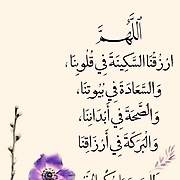 اللَّهُمَّ
ارزُقْنَا السَّكِينَةَ فِي قُلُوبِنَا،
وَالسَّعَادَةَ فِي بُيُوتِنَا،
وَالصِّحَّةَ فِي أَبْدَانِنَا،
وَالْبَرَكَةَ فِي أَرْزَاقِنَا